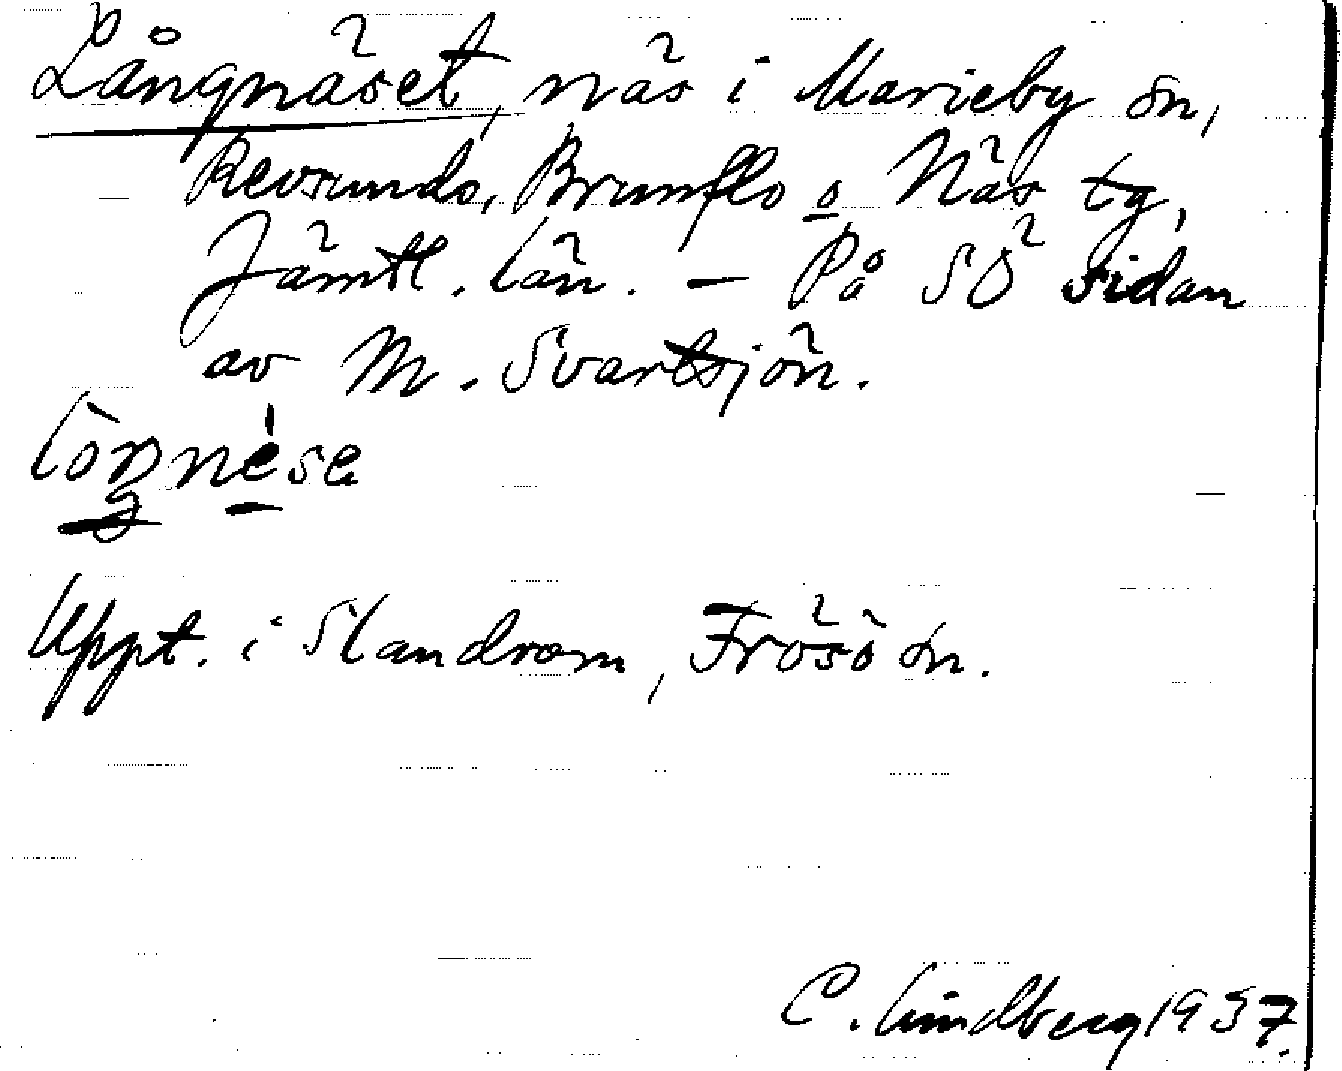 Långnäset, näs i Marieby sn,
Revsunds, Brunflo o Näs tg,
Jämtl. län. – På SÖ sidan
av M. Svartsjön.
Uppt. i Slandrom, Frösö sn.
C. Lindberg 1937.